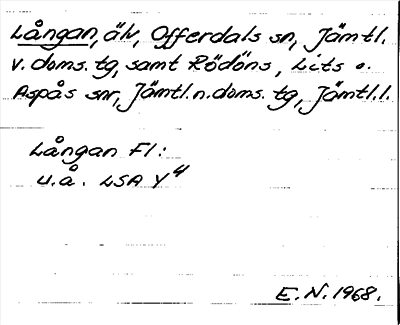 Långan, älv, Offerdals sn, Jämtl.
v. doms. tg, samt Rödöns, Lits o.
Aspås snr, Jämtl. n. doms. tg, Jämtl. l.
Långan Fl:
u.å. LSA Y4
E. N. 1968.